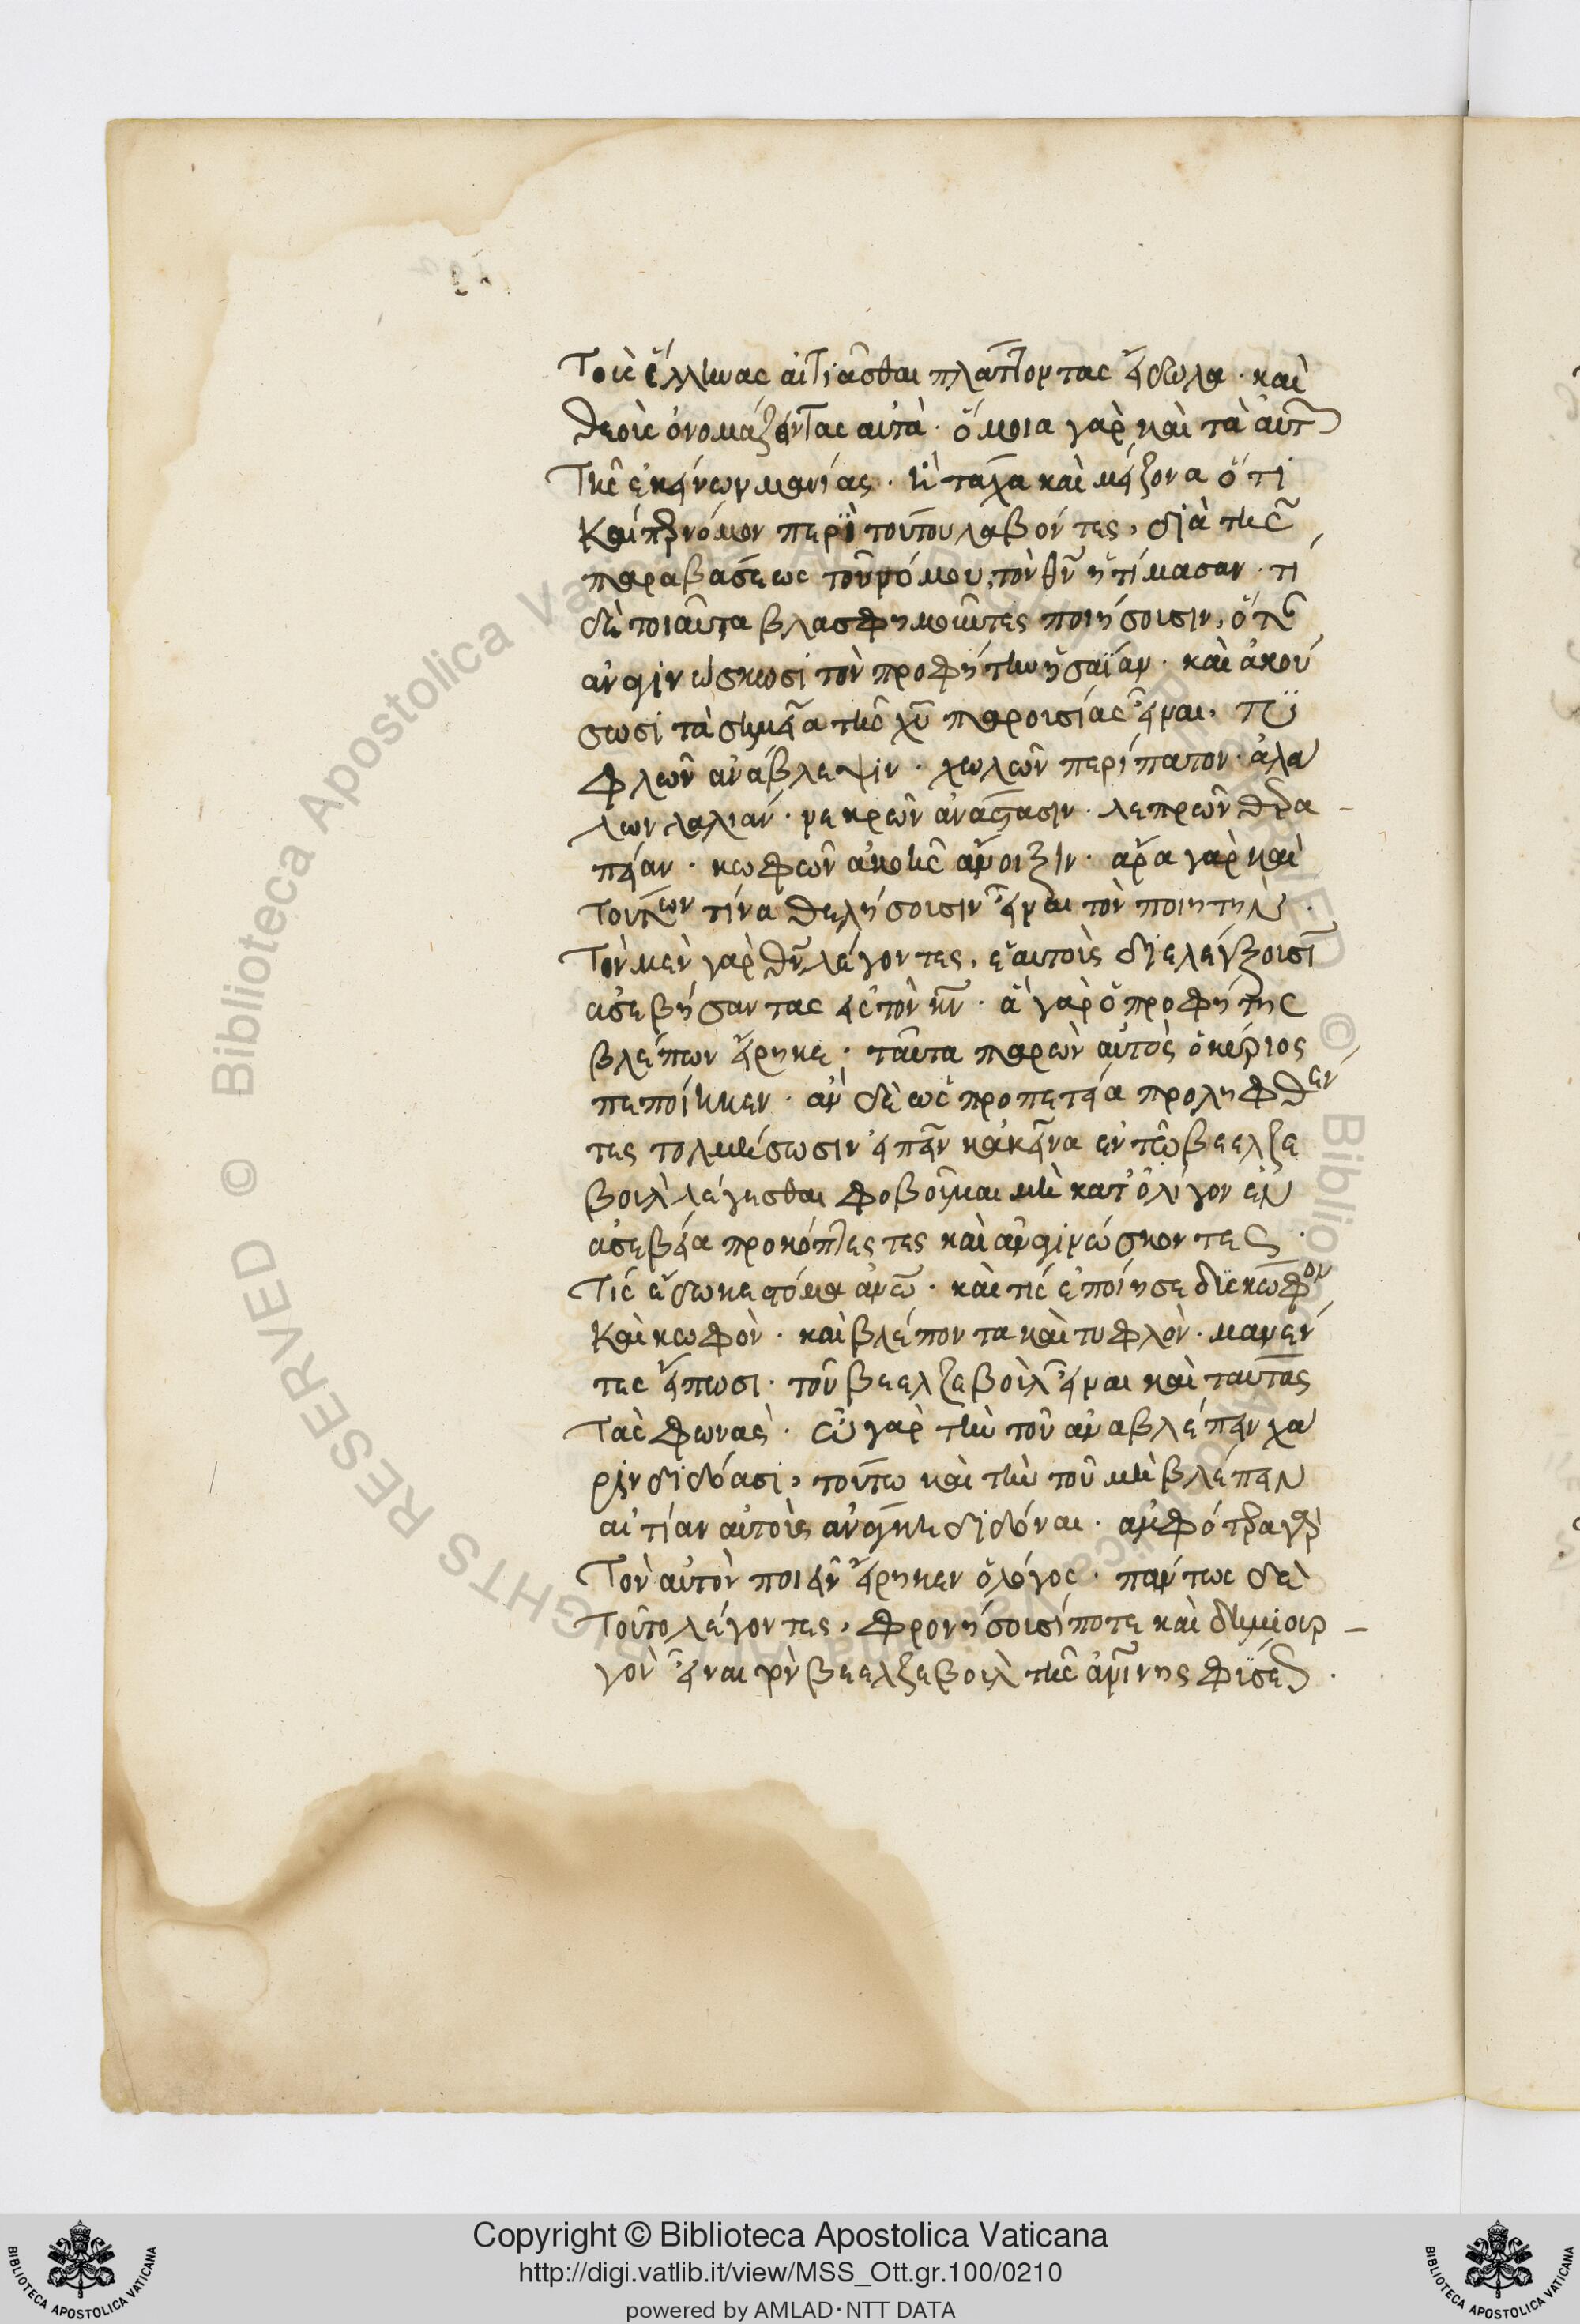 τοὺς ἕλληνας αἰτιᾶσθαι πλάττοντας εἴδωλα · καὶ
θεοὺς ὀνομάζοντας αὐτά · ὅμοια γὰρ καὶ τὰ αὐτῶν
τῆς ἐκείνων μανίας · ἢ τάχα καὶ μείζονα ὅτι
καίπερ νόμον περὶ τούτου λαβόντες, διὰ τῆς
παραβάσεως τοῦ νόμου, τὸν θν ἠτίμασαν · τί
δὲ τοιαῦτα βλασφημοῦντες ποιήσουσιν, ὅταν
ἀναγινώσκωσι τὸν προφήτην ἡσαΐαν · καὶ ἀκού
σωσι τὰ σημεῖα τῆς χυ παρουσίας εἶναι, τυ
φλῶν ἀνάβλεψιν · χωλῶν περίπατον · ἀλά
λων λαλιάν · νεκρῶν ἀνάστασιν · λεπρῶν θερα
πείαν · κωφῶν ἀκοῆς ἄνοιξιν · ἆρα γὰρ καὶ
τούτων τίνα θελήσουσιν εἶναι τὸν ποιητήν ·
τὸν μὲν γὰρ θν λέγοντες, ἑαυτοὺς διελέγξουσιν
ἀσεβήσαντας εἰς τὸν κν · ἃ γὰρ ὁ προφήτης
βλέπων εἴρηκε · ταῦτα παρὼν αὐτὸς ὁ κύριος
πεποίηκεν · ἂν δὲ ὡς προπετείᾳ προληφθέν
τες τολμήσωσιν εἰπεῖν κἀκεῖνα ἐν τῷ βεελζε
βοὺλ λέγεσθαι φοβοῦμαι μὴ κατ' ὀλίγον ἐν
ἀσεβείᾳ προκόπτοντες καὶ ἀναγινώσκοντες ·
τίς ἔδωκε στόμα ἀνω · καὶ τίς ἐποίησε δύσκωφον
καὶ κωφὸν · καὶ βλέποντα καὶ τυφλὸν · μανέν
τες εἴπωσι · τοῦ βεελζεβοὺλ εἶναι καὶ ταύτας
τὰς φωνάς · ᾧ γὰρ τὴν τοῦ ἀναβλέπειν χά
ριν διδόασι, τούτῳ καὶ τὴν τοῦ μὴ βλέπειν
αἰτίαν αὐτοὺς ἀνάγκη διδόναι · ἀμφότερα γὰρ
τὸν αὐτὸν ποιεῖν εἴρηκεν ὁ λόγος · πάντως δὲ
τοῦτο λέγοντες, φρονήσουσί ποτε καὶ δημιουρ
γὸν εἶναι τὸν βεελζεβοὺλ τῆς ἀνίνης φύσεως ·
Copyright © Biblioteca Apostolica Vaticana
http://digi.vatlib.it/view/MSS_Ott.gr.100/0210
powered by AMLAD·NTT DATA